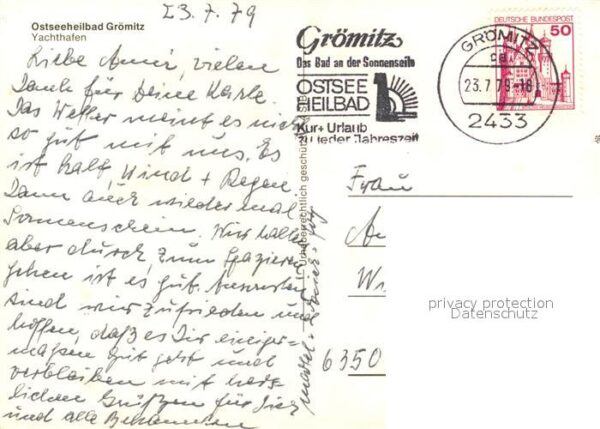 23.7.79
Ostseeheilbad Grömitz
Yachthafen
Liebe Anni, vielen
Dank für Deine Karte.
Das Wetter meint es nicht
so gut mit uns. Es
ist kalt, Wind + Regen
Dann auch wieder mal
Sonnenschein. Wir
aber durch, zum Spazieren
gehen ist es gut.
sind wir zufrieden und
hoffen, daß es Dir einiger-
maßen gut geht und
verbleiben mit herz-
lichen Grüßen für Dich
und alle Bekannten
Urheberrechtlich geschützt
Grömitz
Das Bad an der Sonnenseite
OSTSEE
HEILBAD
Kur + Urlaub
zu jeder Jahreszeit
GRÖMITZ
23.7.79-18
2433
DEUTSCHE BUNDESPOST
50
Frau
An
Wi
6350
privacy protection
Datenschutz